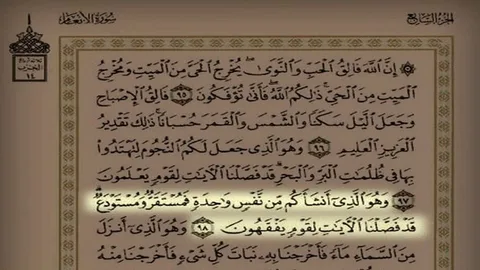 سورة الأنعام
الجزء السابع
إِنَّ اللَّهَ فَالِقُ الْحَبِّ وَالنَّوَىٰ يُخْرِجُ الْحَيَّ مِنَ الْمَيِّتِ وَمُخْرِجُ
الْمَيِّتِ مِنَ الْحَيِّ ذَٰلِكُمُ اللَّهُ فَأَنَّىٰ تُؤْفَكُونَ ٩٥ فَالِقُ الْإِصْبَاحِ
وَجَعَلَ اللَّيْلَ سَكَنًا وَالشَّمْسَ وَالْقَمَرَ حُسْبَانًا ذَٰلِكَ تَقْدِيرُ
الْعَزِيزِ الْعَلِيمِ ٩٦ وَهُوَ الَّذِي جَعَلَ لَكُمُ النُّجُومَ لِتَهْتَدُوا
بِهَا فِي ظُلُمَاتِ الْبَرِّ وَالْبَحْرِ قَدْ فَصَّلْنَا الْآيَاتِ لِقَوْمٍ يَعْلَمُونَ
٩٧ وَهُوَ الَّذِي أَنشَأَكُم مِّن نَّفْسٍ وَاحِدَةٍ فَمُسْتَقَرٌّ وَمُسْتَوْدَعٌ
قَدْ فَصَّلْنَا الْآيَاتِ لِقَوْمٍ يَفْقَهُونَ ٩٨ وَهُوَ الَّذِي أَنزَلَ
مِنَ السَّمَاءِ مَاءً فَأَخْرَجْنَا بِهِ نَبَاتَ كُلِّ شَيْءٍ فَأَخْرَجْنَا مِنْهُ